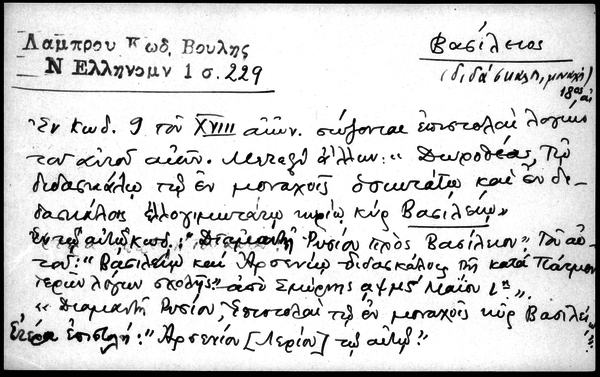 Λάμπρου Κωδ. Βουλής
Ν Ελληνομν 1 σ. 229
Βασίλειος
(διδάσκαλ, μοναχ)
18ος αἰ
Ἐν κωδ. 9 τοῦ XVIII αἰῶν. σώζονται ἐπιστολαὶ λογίων
τοῦ αὐτοῦ αἰῶν. Μεταξὺ ἄλλων: "Δωροθέας, Τῷ
διδασκάλῳ τῷ ἐν μοναχοῖς ὁσιωτάτῳ καὶ ἐν δι-
δασκάλοις ἐλλογιμωτάτῳ κυρίῳ κὺρ Βασιλείῳ»
Ἐν τῷ αὐτῷ κωδ.: "Διαμαντῆ Ρυσίου πρὸς Βασίλειον". Τοῦ αὐ-
τοῦ: "Βασιλείῳ καὶ Ἀρσενίῳ διδασκάλοις τῆς κατὰ Πάτμον
τερων λόγων σχολῆς" ἀπὸ Σμύρνης αψμς Μαΐου".
"Διαμαντῆ Ρυσίου, Ἐπιστολαὶ τῷ ἐν μοναχοῖς κὺρ Βασιλεί
Ἑτέρα ἐπιστολή: "Ἀρσενίου [Λερίου] τῷ αὐτῷ"